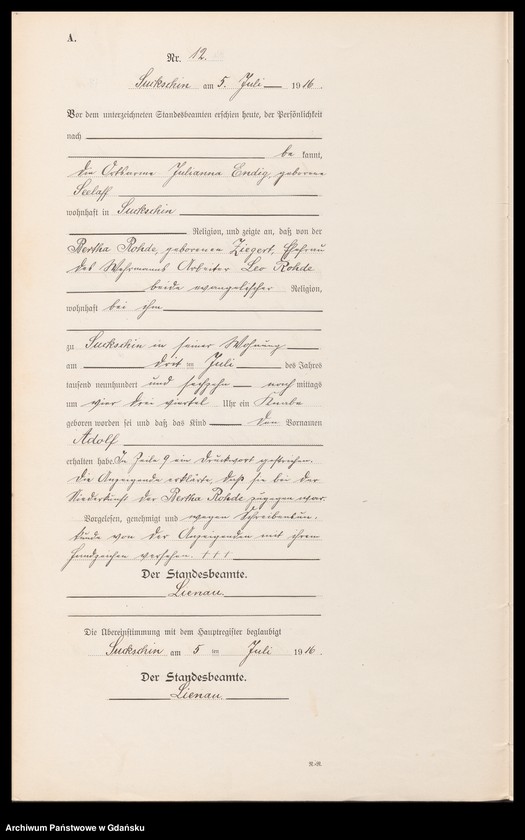 A.
Nr. 12.
Suckschin am 5. Juli 1916.
Vor dem unterzeichneten Standesbeamten erschien heute, der Persönlichkeit
nach
be kannt,
die Julianna Endig, geborene
Seelaff
wohnhaft in Suckschin
Religion, und zeigte an, daß von der
Bertha Rohde, geborenen Ziegert, Ehefrau
des Wehrmanns Arbeiter Leo Rohde
beide evangelischer Religion,
wohnhaft bei ihm
zu Suckschin in seiner Wohnung
am drit en Juli des Jahres
tausend neunhundert und sechzehn nach mittags
um vier drei viertel Uhr ein Knabe
geboren worden sei und daß das Kind den Vornamen
Adolf
erhalten habe. In Zeile 9 ein Druckwort gestrichen.
Die Anzeigende erklärte, daß sie bei der
Niederkunft der Bertha Rohde zugegen war.
Vorgelesen, genehmigt und wegen Schreibenskun-
de von der Anzeigenden mit ihrem
Handzeichen versehen. †††
Der Standesbeamte.
Lienau.
Die Übereinstimmung mit dem Hauptregister beglaubigt
Suckschin am 5 ten Juli 1916.
Der Standesbeamte.
Lienau.
Archiwum Państwowe w Gdańsku